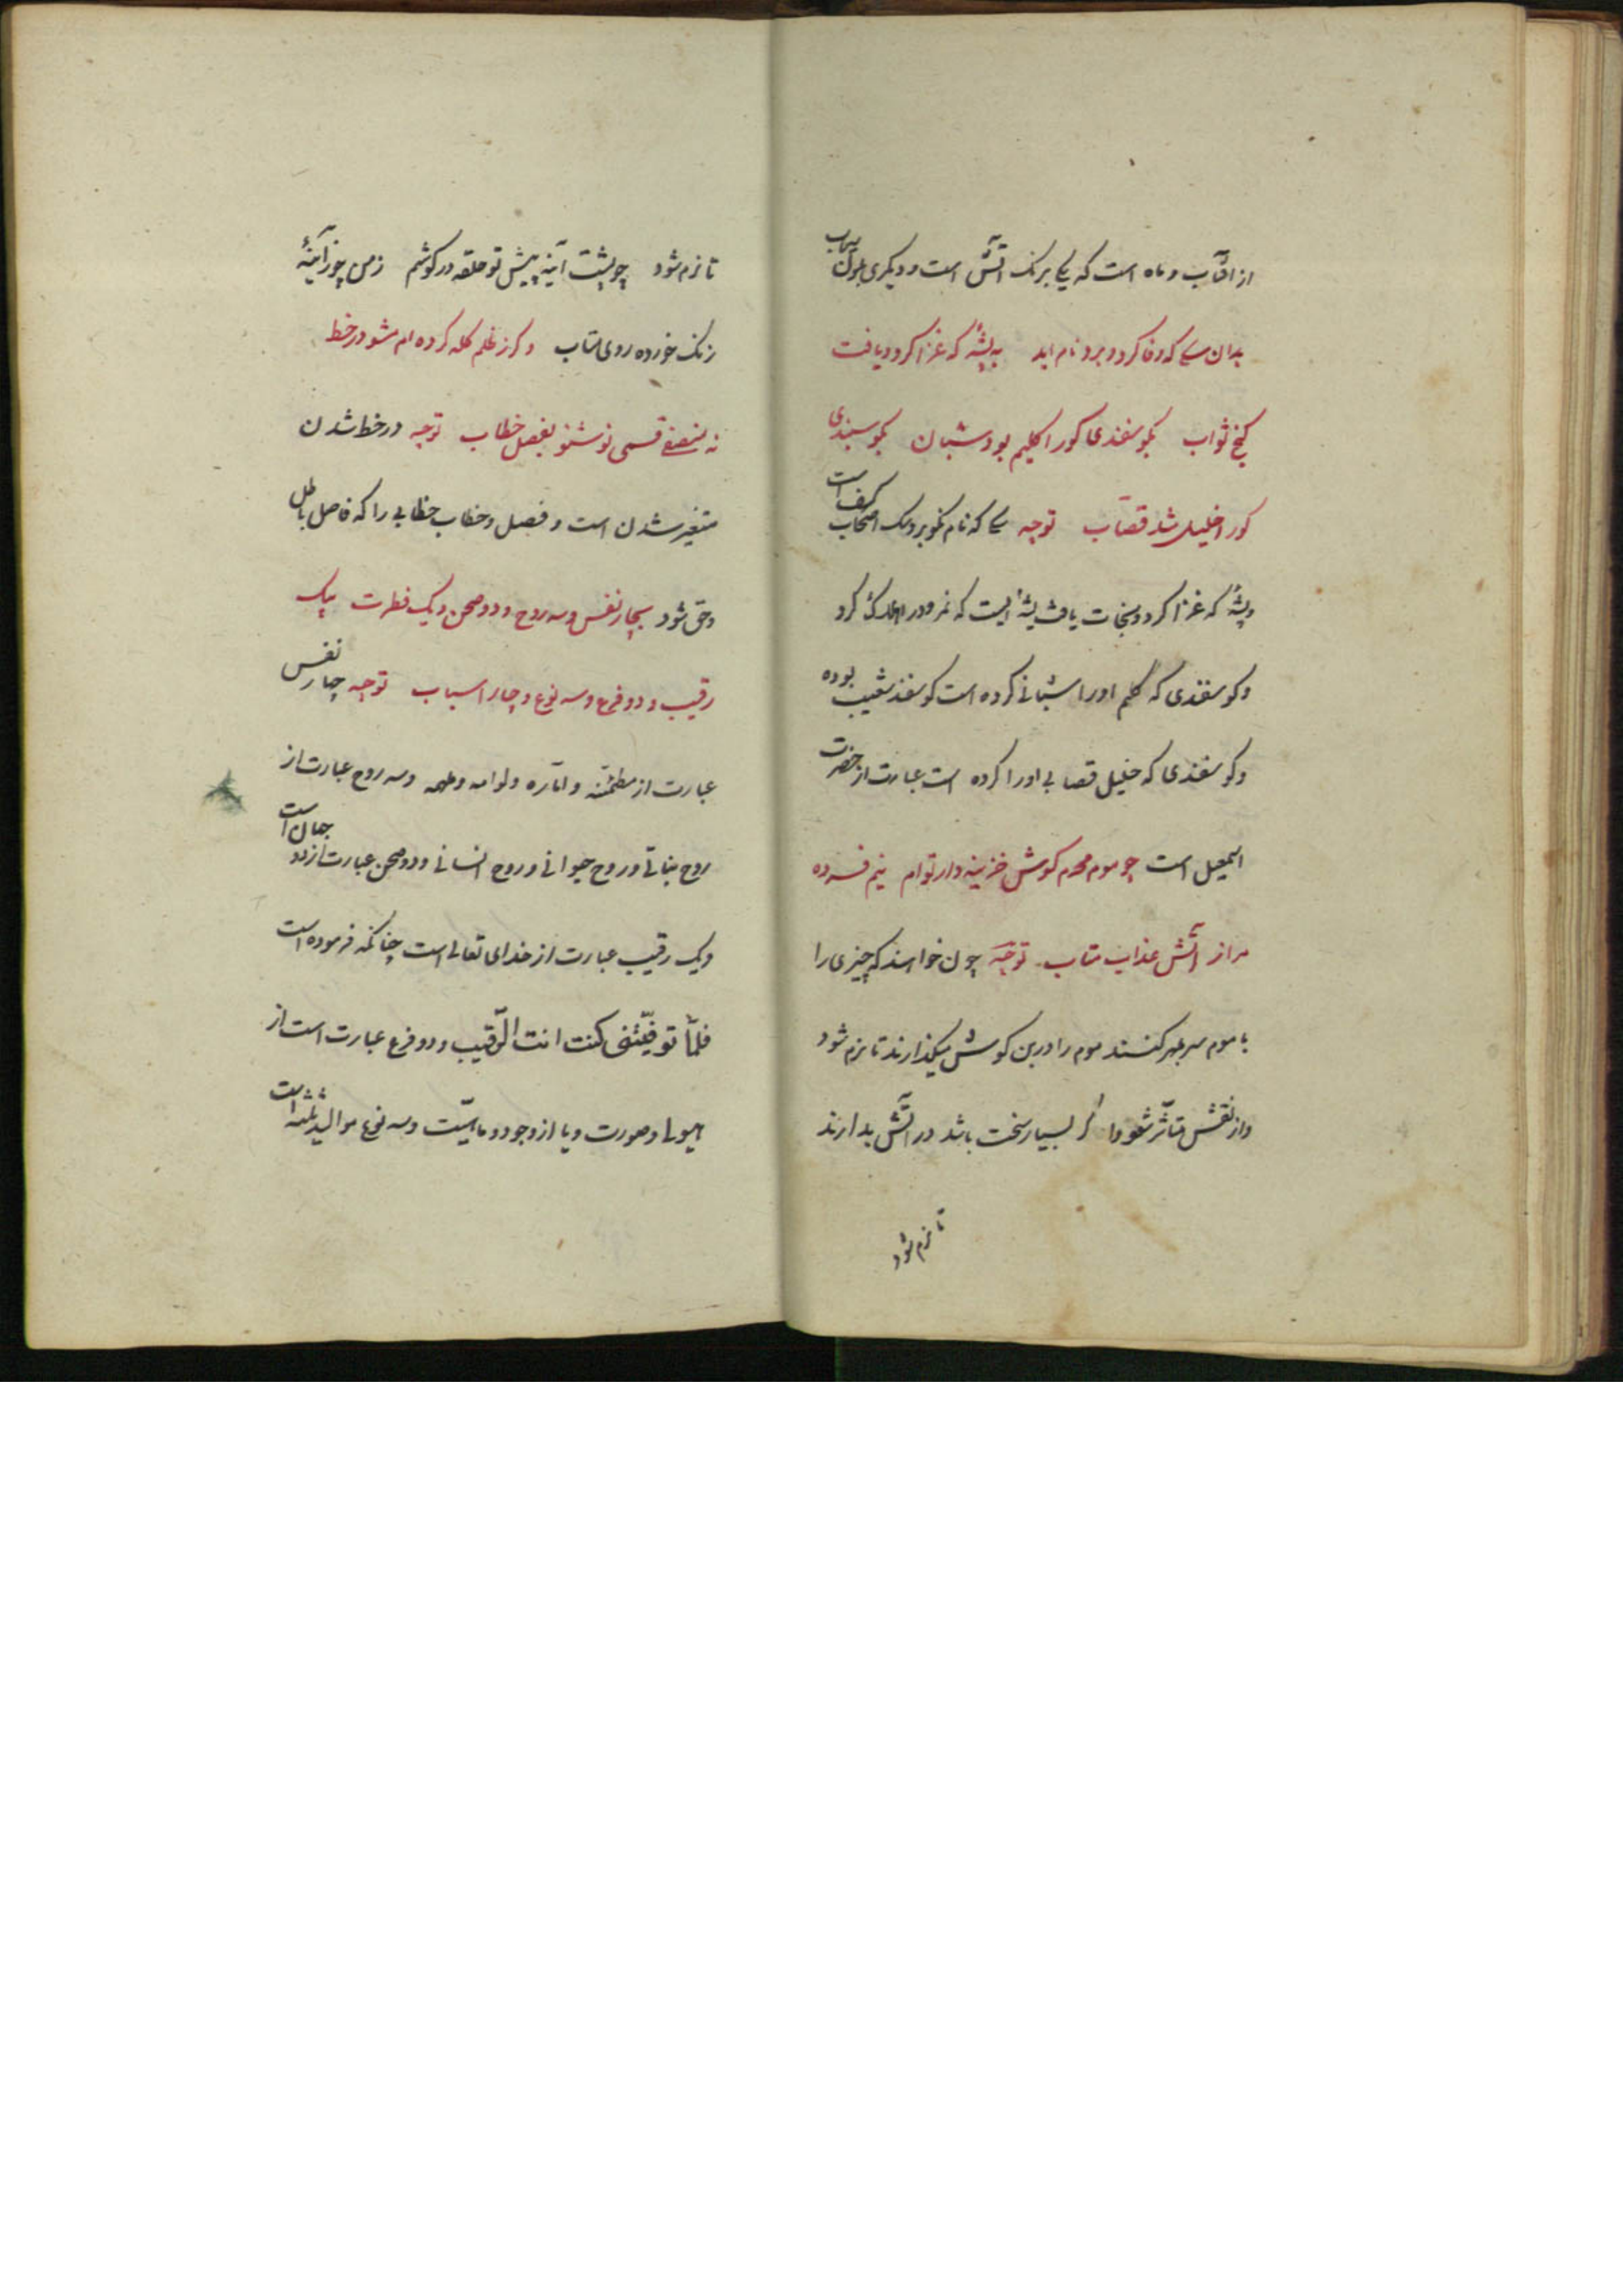 از افتآب و ماه است که یکی برنک اتش است و دیکری بلون سیماب
بدان سکی که وفا کرد و برد نام ابد به پشهٔ که غزا کرد و یافت
کنج ثواب بکوسفندی کورا کلیم بود شبان بکوسبندی
کورا خلیل شد قصّاب توجه سکی که نام نکو برد سک اصحاب کهف است
و پشهٔ که غزا کرد و نجات یافت پشهٔ ایست که نمرود را هلاک کرد
و کوسفندی که کلیم او را شبانی کرده است کوسفند شعیب بوده
و کوسفندی که خلیل قصابی او را کرده است عبارت از حضرت
اسمعیل است چو موم محرم کوش خزینه دار توام نیم فسرده
مرا ز آتش عذاب متاب توجّه چون خواهند که چیزی را
با موم سر بمهر کنند موم را در بن کوش میکذارند تا نرم شود
و از نقش متأثّر شود و اکر بسیار سخت باشد در آتش بدارند
تا نرم شود
تا نرم شود چو پشت آینه پیش تو حلقه در کوشم ز من چو ز آینهٔ
زنک خورده روی متاب و کر ز ظلم کله کرده ام مشو در خط
نه منصفی قسمی نو شنو بفصل خطاب توجه در خط شدن
متغیر شدن است و فصل و خطاب خطابی را که فاصل باطل
و حق شود بچار نفس و سه روح و دو صحن و یک فطرت بیک
رقیب و دو فرع و سه نوع و چار اسباب توجه چار نفس
عبارت از مطمئنّه و امّاره و لوامه و ملهمه و سه روح عبارت از
روح نباتی و روح حیوانی و روح انسانی و دو صحن عبارت از دو جهان است
و یک رقیب عبارت از خدای تعالی است چنانکه فرموده است
فلمّا توفّیتنی کنت انت الرّقیب و دو فرع عبارت است از
هیولی و صورت و یا از وجود و ماهیّت و سه نوع موالید ثلثه است